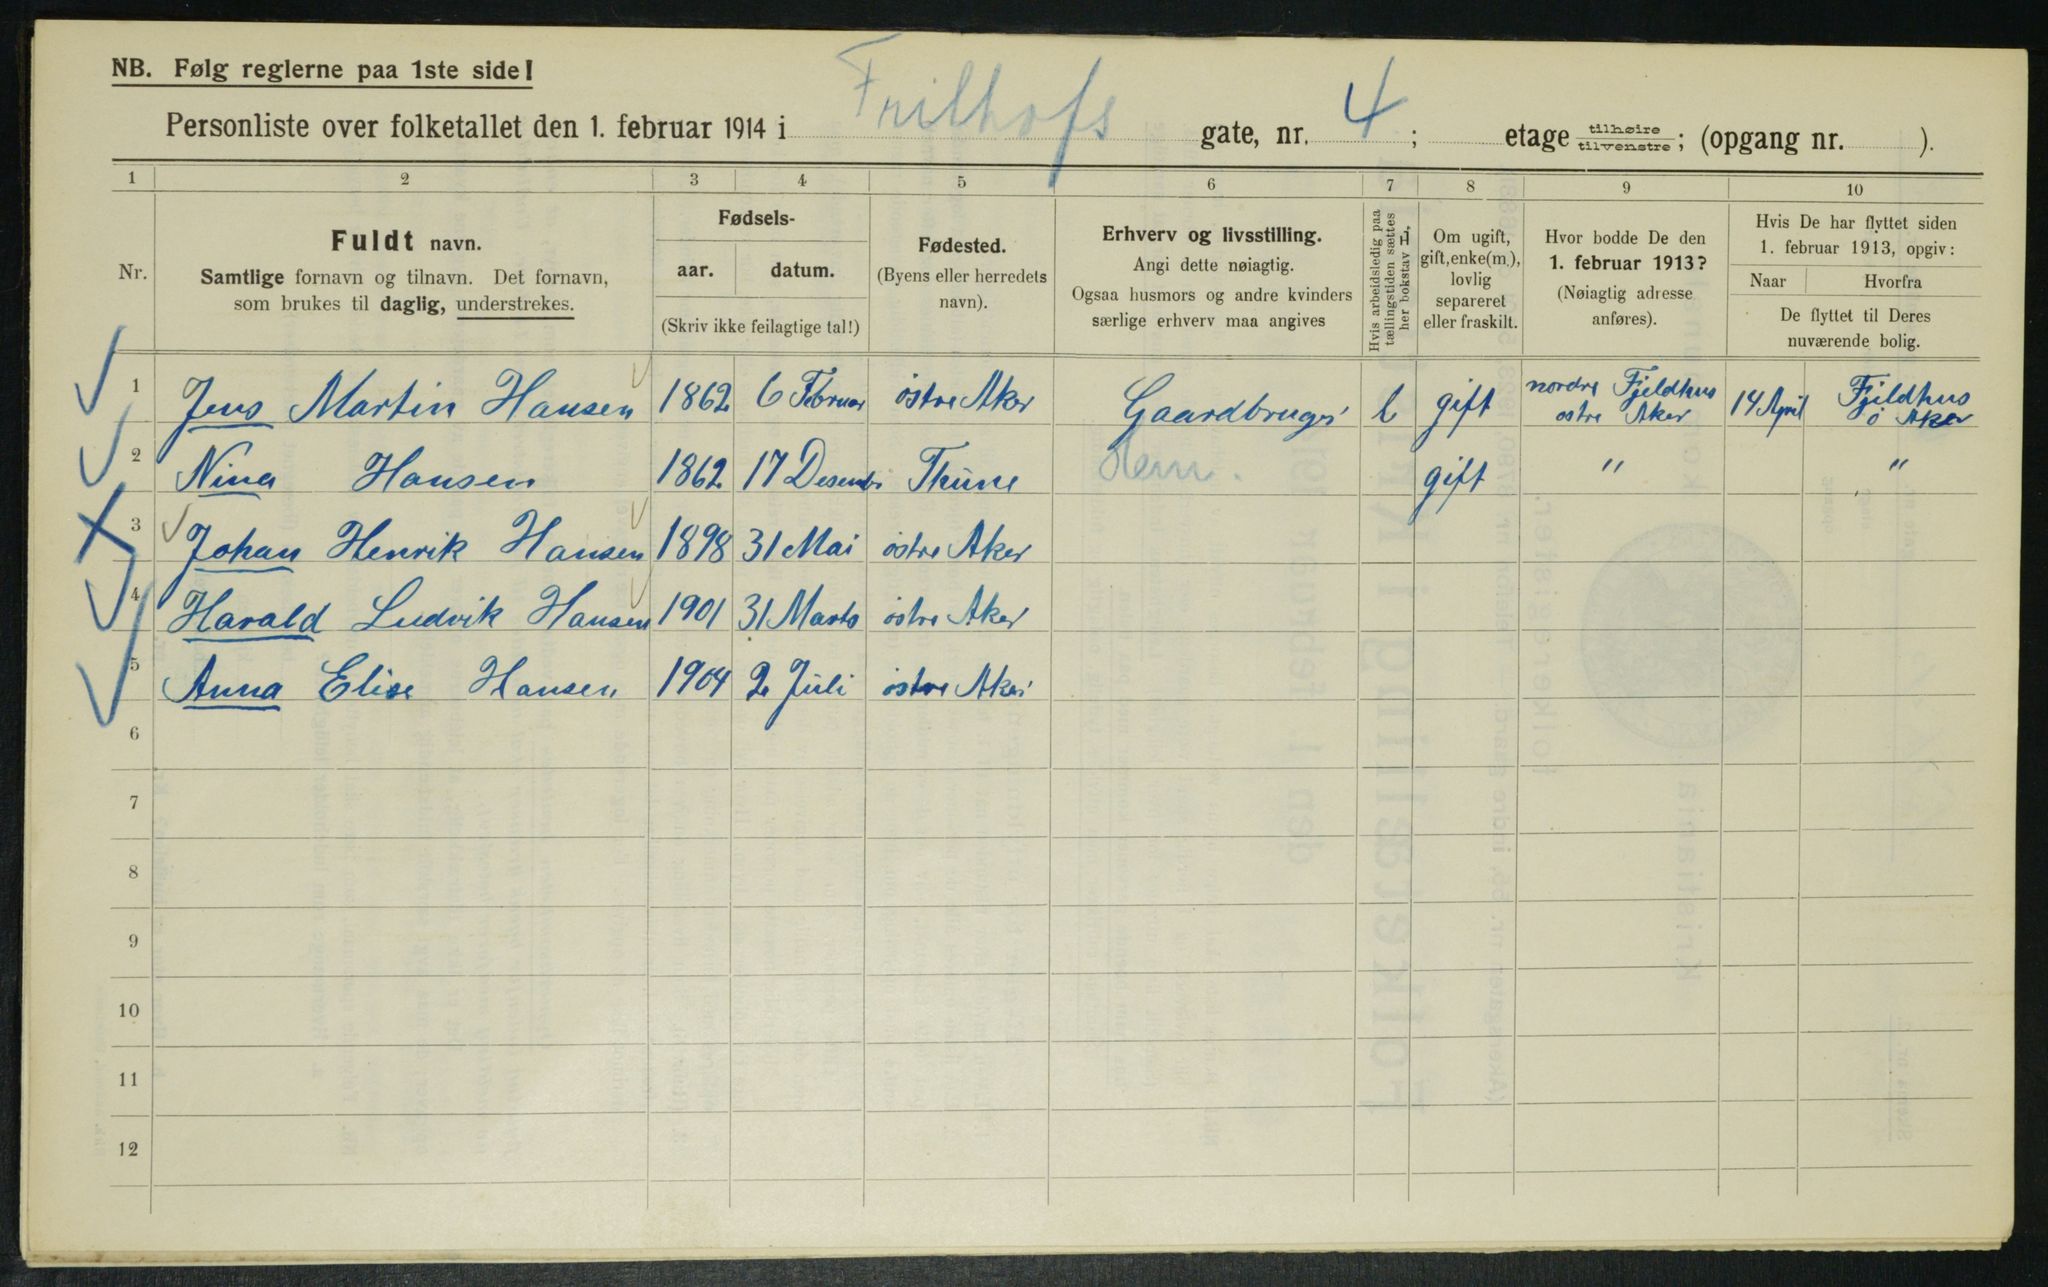 NB. Følg reglerne paa 1ste side!
Personliste over folketallet den 1. februar 1914 i Frithofs gate, nr. 4; etage tilhøire tilvenstre; (opgang nr. ).
1 2 3 4 5 6 7 8 9 10
Nr.
Fuldt navn.
Samtlige fornavn og tilnavn. Det fornavn,
som brukes til daglig, understrekes.
Fødsels-
aar. datum.
(Skriv ikke feilagtige tal!)
Fødested.
(Byens eller herredets
navn).
Erhverv og livsstilling.
Angi dette nøiagtig.
Ogsaa husmors og andre kvinders
særlige erhverv maa angives
Hvis arbeidsledig paa
tællingstiden sættes
her bokstav L.
Om ugift,
gift, enke(m.),
lovlig
separeret
eller fraskilt.
Hvor bodde De den
1. februar 1913?
(Nøiagtig adresse
anføres).
Hvis De har flyttet siden
1. februar 1913, opgiv:
Naar Hvorfra
De flyttet til Deres
nuværende bolig.
1 Jens Martin Hansen 1862 6 Februar østre Aker Gaardbruger L gift nordre Fjeldhus østre Aker 14 April Fjeldhus ø Aker
2 Nina Hansen 1862 17 Desember Thune Hem. gift " "
3 Johan Henrik Hansen 1898 31 Mai østre Aker
4 Harald Ludvik Hansen 1901 31 Marts østre Aker
5 Anna Elise Hansen 1904 2 Juli østre Aker
6
7
8
9
10
11
12